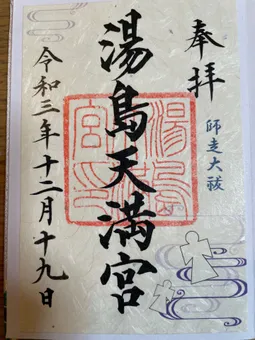 奉拝
師走大祓
湯島天満宮
令和三年十二月十九日